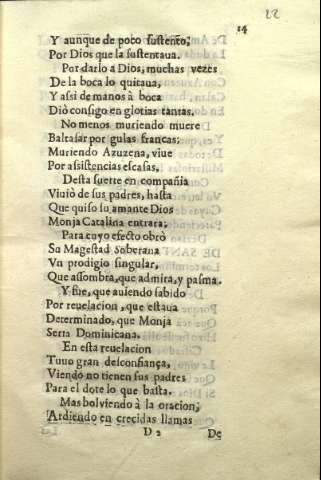 22
14
Y aunque de poco sustento,
Por Dios que la sustentaua.
Por darlo a Dios, muchas vezes
De la boca lo quitaua,
Y assi de manos à boca
Diò consigo en glorias tantas.
No menos muriendo muere
Baltasar por gulas francas;
Muriendo Azuzena, viue
Por assistencias escasas,
Desta suerte en compañia
Viuiò de sus padres, hasta
Que quiso su amante Dios
Monja Catalina entrara;
Para cuyo efecto obrò
Su Magestad Soberana
Vn prodigio singular,
Que assombra, que admira, y pasma.
Y fue, que auiendo sabido
Por reuelacion, que estaua
Determinado, que Monja
Seria Dominicana.
En esta reuelacion
Tuuo gran desconfiança,
Viendo no tienen sus padres
Para el dote lo que basta.
Mas bolviendo à la oracion,
Ardiendo en crecidas llamas
D 2 De